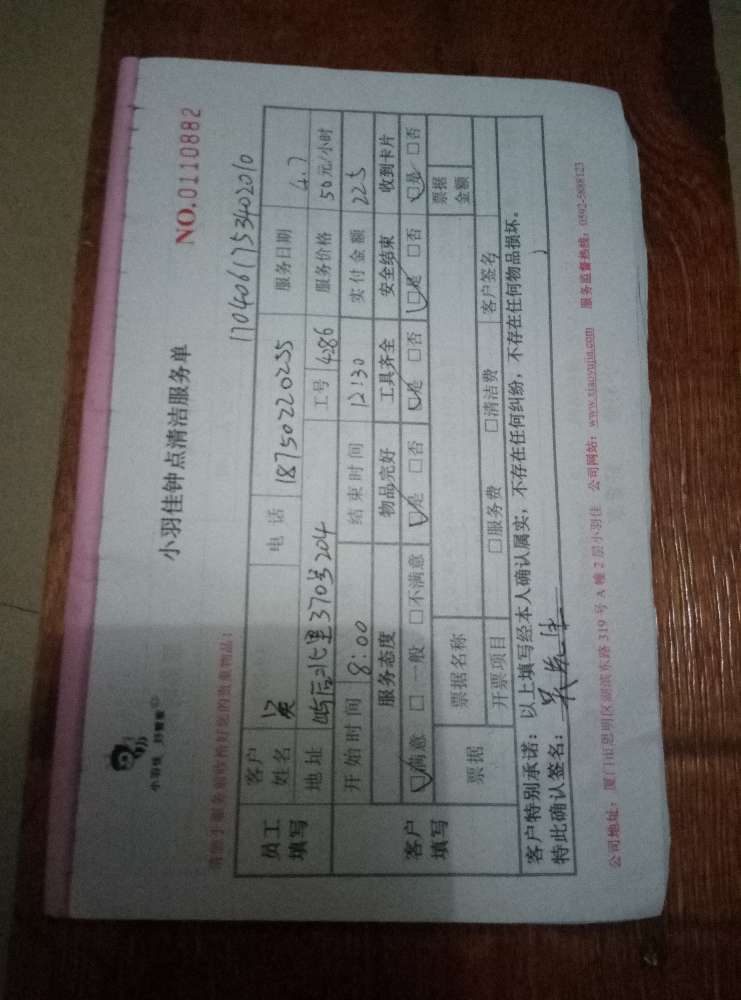 小羽佳
小羽佳钟点清洁服务单
NO.0110882
170406175340201０
员工填写
客户姓名 吴 电话 18750220255 服务日期 4.7
地址 屿后北里370号204 工号 4286 服务价格 50元/小时
开始时间 8:00 结束时间 12:30 实付金额 225
客户填写
服务态度 物品完好 工具齐全 安全结束 收到卡片
☑满意 □一般 □不满意 ☑是 □否 ☑是 □否 ☑是 □否 ☑是 □否
票据 票据名称 票据金额
开票项目 □服务费 □清洁费 客户签名
客户特别承诺:以上填写经本人确认属实,不存在任何纠纷,不存在任何物品损坏。
特此确认签名:
公司地址:厦门市思明区湖滨东路319号A幢2层小羽佳 公司网站:www.xiaoyujia.com 服务监督热线:0592-5888123